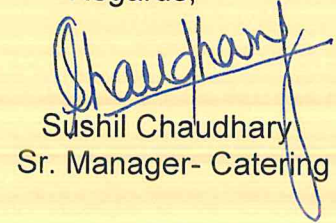 Regards,
Chaudhary
Sushil Chaudhary
Sr. Manager- Catering